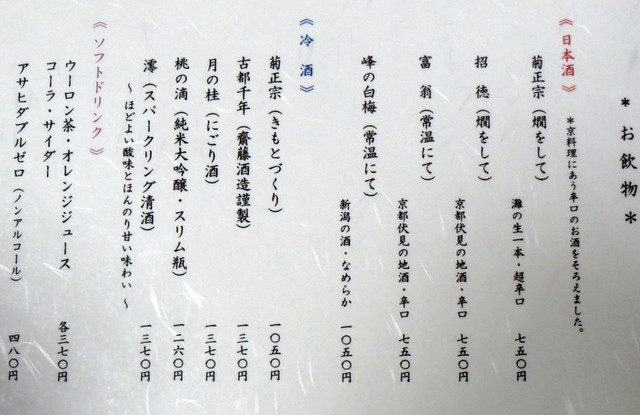 ＊お飲物＊
《日本酒》 ＊京料理にあう辛口のお酒をそろえました。
菊正宗（燗をして） 灘の生一本・超辛口 七五〇円
招 徳（燗をして） 京都伏見の地酒・辛口 七五〇円
富 翁（常温にて） 京都伏見の地酒・辛口 七五〇円
峰の白梅（常温にて） 新潟の酒・なめらか 一〇五〇円
《冷酒》
菊正宗（きもとづくり） 一〇五〇円
古都千年（齋藤酒造謹製） 一三七〇円
月の桂（にごり酒） 一三七〇円
桃の滴（純米大吟醸・スリム瓶） 一二六〇円
澪（スパークリング清酒） 一三七〇円
～ほどよい酸味とほんのり甘い味わい～
《ソフトドリンク》
ウーロン茶・オレンジジュース
コーラ・サイダー 各三七〇円
アサヒダブルゼロ（ノンアルコール） 四八〇円